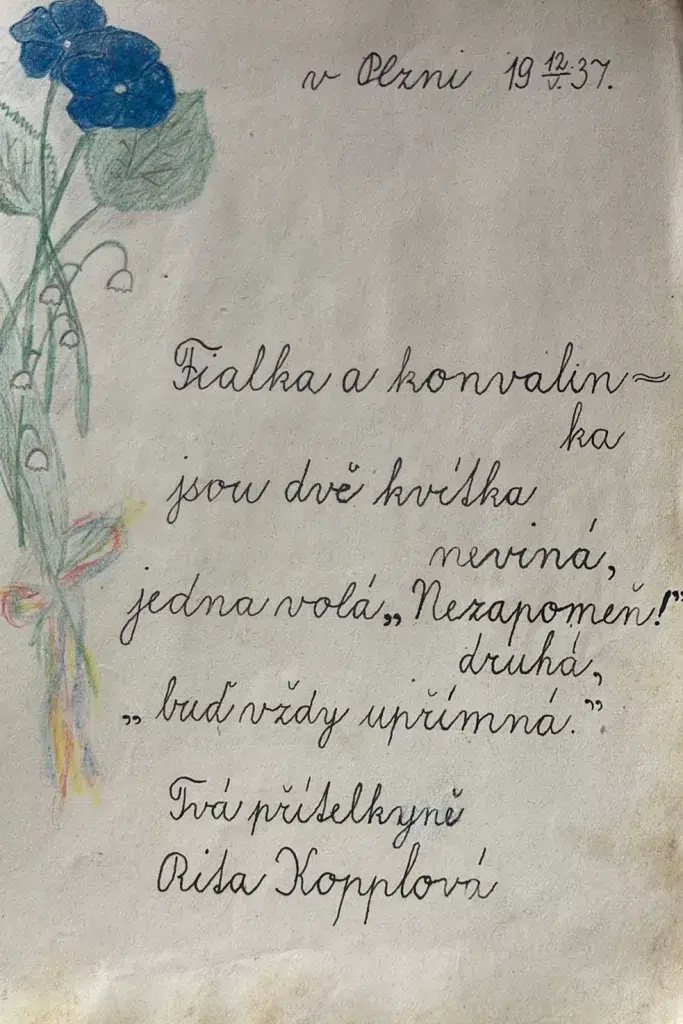 v Plzni 19 12./V. 37.
Fialka a konvalin~
ka
jsou dvě kvítka
neviná,
jedna volá „Nezapomeň!”
druhá,
„buď vždy upřímná.”
Tvá přítelkyně
Rita Kopplová